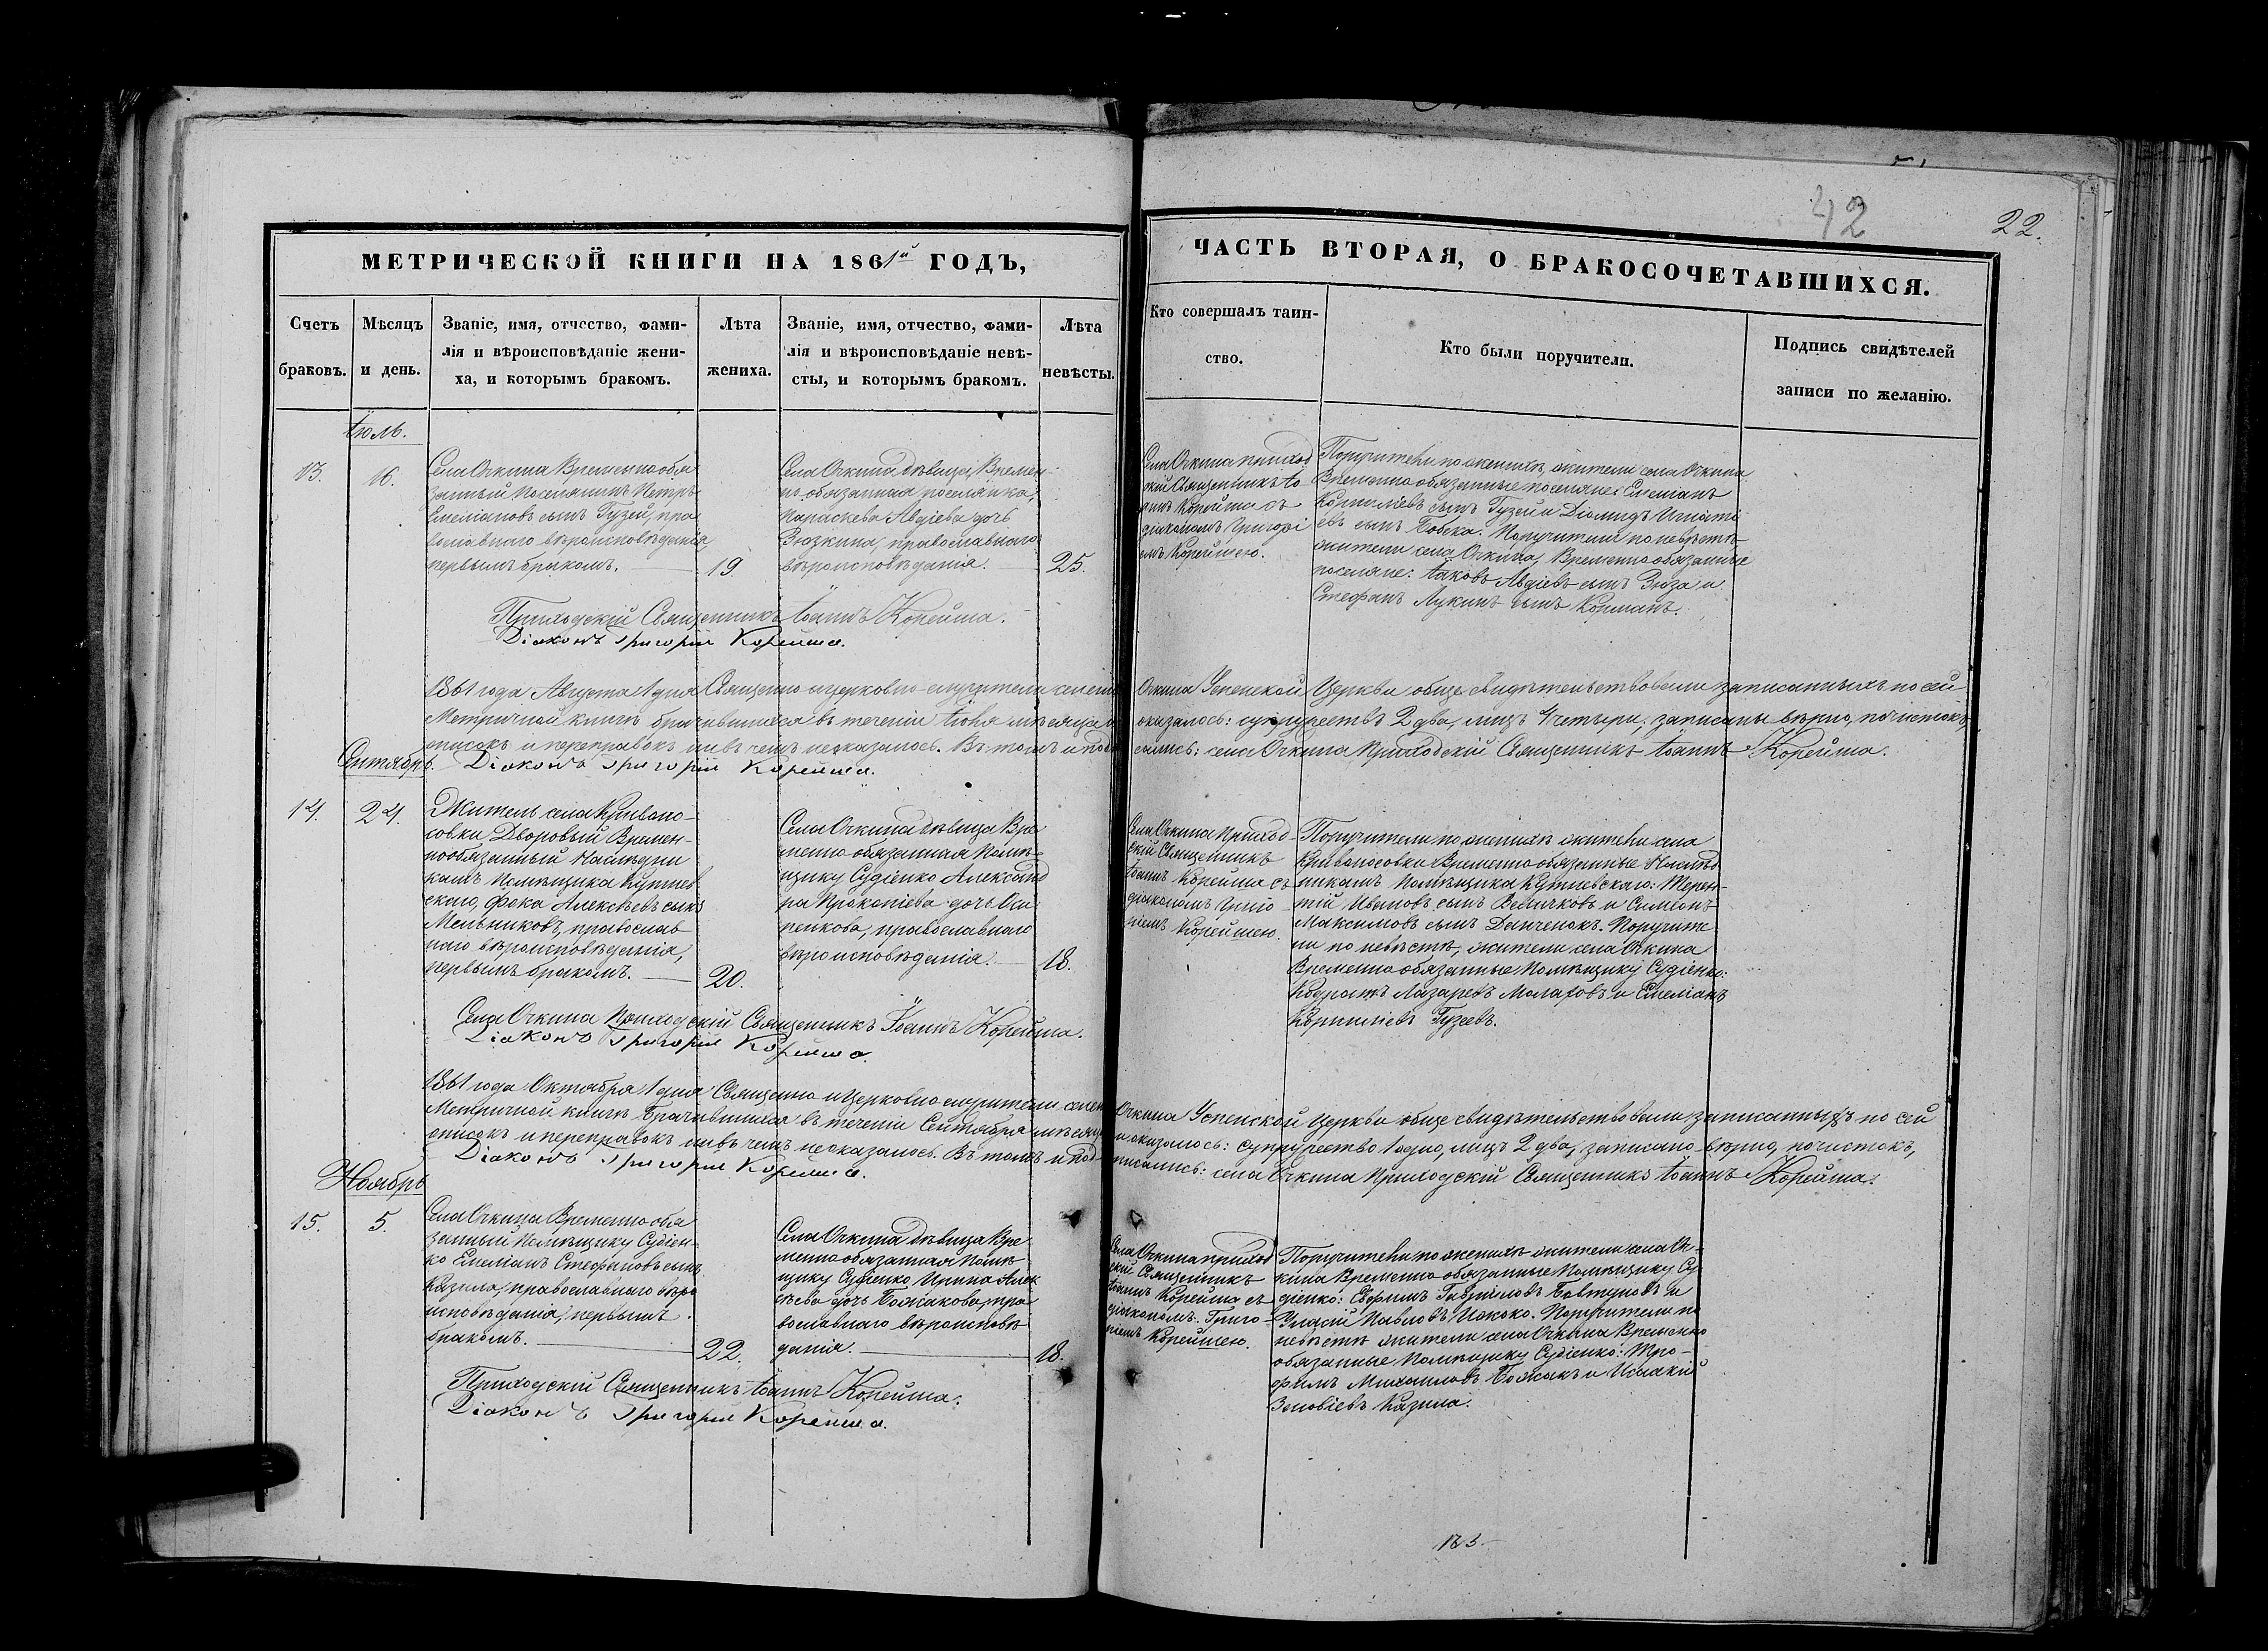 42
22.
МЕТРИЧЕСКОЙ КНИГИ НА 1861й ГОДЪ,
Счетъ браковъ.
Мѣсяцъ и день.
Званіе, имя, отчество, фами-
лія и вѣроисповѣданіе жени-
ха, и которымъ бракомъ.
Лѣта жениха.
Званіе, имя, отчество, фами-
лія и вѣроисповѣданіе невѣ-
сты, и которымъ бракомъ.
Лѣта невѣсты.
ЧАСТЬ ВТОРАЯ, О БРАКОСОЧЕТАВШИХСЯ.
Кто совершалъ таин-
ство.
Кто были поручители.
Подпись свидѣтелей
записи по желанію.
Іюль.
13.
16.
Села Очкина Временнообя
занный Поселянинъ Петръ
Емеліановъ сынъ Гузей, пра
вославнаго вѣроисповѣданія,
первымъ бракомъ.
19.
Села Очкина дѣвица, Времен-
но обязанная поселянка,
Параскева Авдіева дочь
Зюзкина, православнаго
вѣроисповѣданія.
25.
Села Очкина приход
скій Священникъ Іо
аннъ Корейша съ
діакономъ Григорі
емъ Корейшею.
Поручители по женихѣ жители села Очкина
Временнообязанные поселяне: Емеліанъ
Корниліевъ сынъ Гузей и Діомидъ Игнаті
евъ сынъ Бобска. Поручители по невѣстѣ
жители села Очкина, Временнообязанные
поселяне: Іаковъ Авдіевъ сынъ Зюза и
Стефанъ Лукинъ сынъ Кокманъ.
Приходскій Священникъ Іоаннъ Корейша.
Діаконъ Григорій Корейша.
1861 года Августа 1 дня Священно и церковно-служители села Очкина Успенской Церкви обще свидѣтельствовали записанныхъ по сей
Метричной книгѣ брачившихся въ теченіи Іюля мѣсяца и оказалось: супружествъ 2 два, лицъ 4 четыри; записаны вѣрно, почистокъ,
описокъ и переправокъ ни въ чемъ неоказалось. Въ томъ и подписались: села Очкина Приходскій Священникъ Іоаннъ Корейша.
Діаконъ Григорій Корейша.
Сентябрь.
14.
24.
Житель села Кривоно-
совки Дворовый Времен-
нообязанный Наслѣдни
камъ Помѣщика Кутнев
скаго, Фока Алексѣевъ сынъ
Мельниковъ, православ
наго вѣроисповѣданія,
первымъ бракомъ.
20.
Села Очкина дѣвица Вре
менно обязанная Помѣ-
щику Судіенко Александ
ра Прокопіева дочь
православнаго
вѣроисповѣданія.
18.
Села Очкина Приход-
скій Священникъ
Іоаннъ Корейша съ
діакономъ Григо
ріемъ Корейшею.
Поручители по женихѣ жители села
Кривоносовки Временно обязанные Наслѣд
никамъ Помѣщика Кутневскаго: Терен-
тій Ивановъ сынъ Величковъ и Симіонъ
Максимовъ сынъ Данченокъ. Поручите
ли по невѣстѣ, жители села Очкина
Временно обязанные Помѣщику Судіенко:
Кодратъ Лазаревъ Малаховъ и Емеліанъ
Корниліевъ Гузеевъ.
Села Очкина Приходскій Священникъ Іоаннъ Корейша.
Діаконъ Григорій Корейша.
1861 года Октября 1 дня Священно и Церковно служители села Очкина Успенской Церкви обще свидѣтельствовали записанныхъ по сей
Метричной книгѣ Брачившихся въ теченіи Сентября мѣсяца и оказалось: супружество 1 одно, лицъ 2 два, записано вѣрно, почистокъ,
описокъ и переправокъ ни въ чемъ неоказалось. Въ томъ и подписались: села Очкина Приходскій Священникъ Іоаннъ Корейша.
Діаконъ Григорій Корейша.
Ноябрь
15.
5.
Села Очкина Временно обя
занный Помѣщику Судіен-
ко Емеліанъ Стефановъ сынъ
Казила, православнаго вѣро
исповѣданія, первымъ
бракомъ.
22.
Села Очкина дѣвица Вре
менно обязанная Помѣ
щику Судіенко Ирина Алек
сѣева дочь Божакова, пра
вославнаго вѣроисповѣ
данія.
18.
Села Очкина приход
скій Священникъ
Іоаннъ Корейша съ
діакономъ Григо-
ріемъ Корейшею.
Поручители по женихѣ жители села Оч-
кина Временно обязанные Помѣщику Су
діенко: Ефримъ Гавриловъ Бовтуновъ и
Уласій Павловъ Искоко. Поручители по
невѣстѣ жители села Очкина Временно
обязанные Помѣщику Судіенко: Тро-
фимъ Михаиловъ Божокъ и Исаакій
Зеновіевъ Казила.
Приходскій Священникъ Іоаннъ Корейша.
Діаконъ Григорій Корейша.